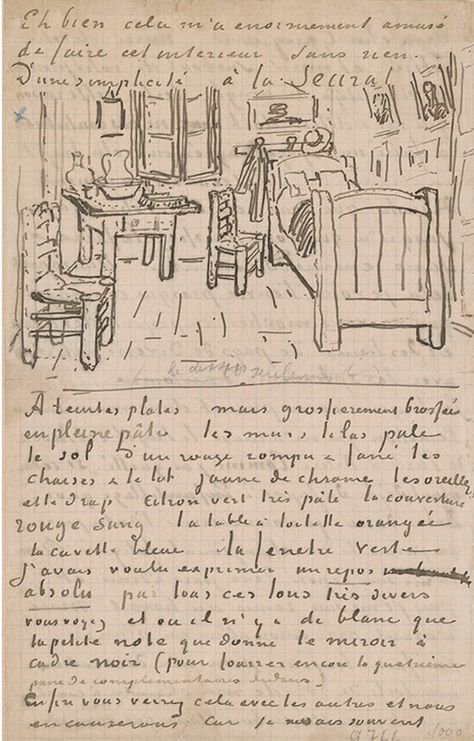 Eh bien cela m'a enormement amusé
de faire cet interieur sans rien.
D'une simplicité à la Seurat
le dessin seulement
A teintes plates mais grossierement brossées
en pleine pâte les murs lilas pale
le sol d'un rouge rompu & fané les
chaises & le lit jaune de chrome les oreillers
et le drap citron vert très pâle la couverture
rouge sang la table à toilette orangée
la cuvette bleue la fenetre verte
J'avais voulu exprimer un repos
absolu par tous ces tons très divers
vous voyez et ou il n'y a de blanc que
la petite note que donne le miroir à
cadre noir (pour fourrer encore la quatrième
paire de complementaires dedans)
Enfin vous verrez cela avec les autres et nous
en causerons car je ne sais souvent